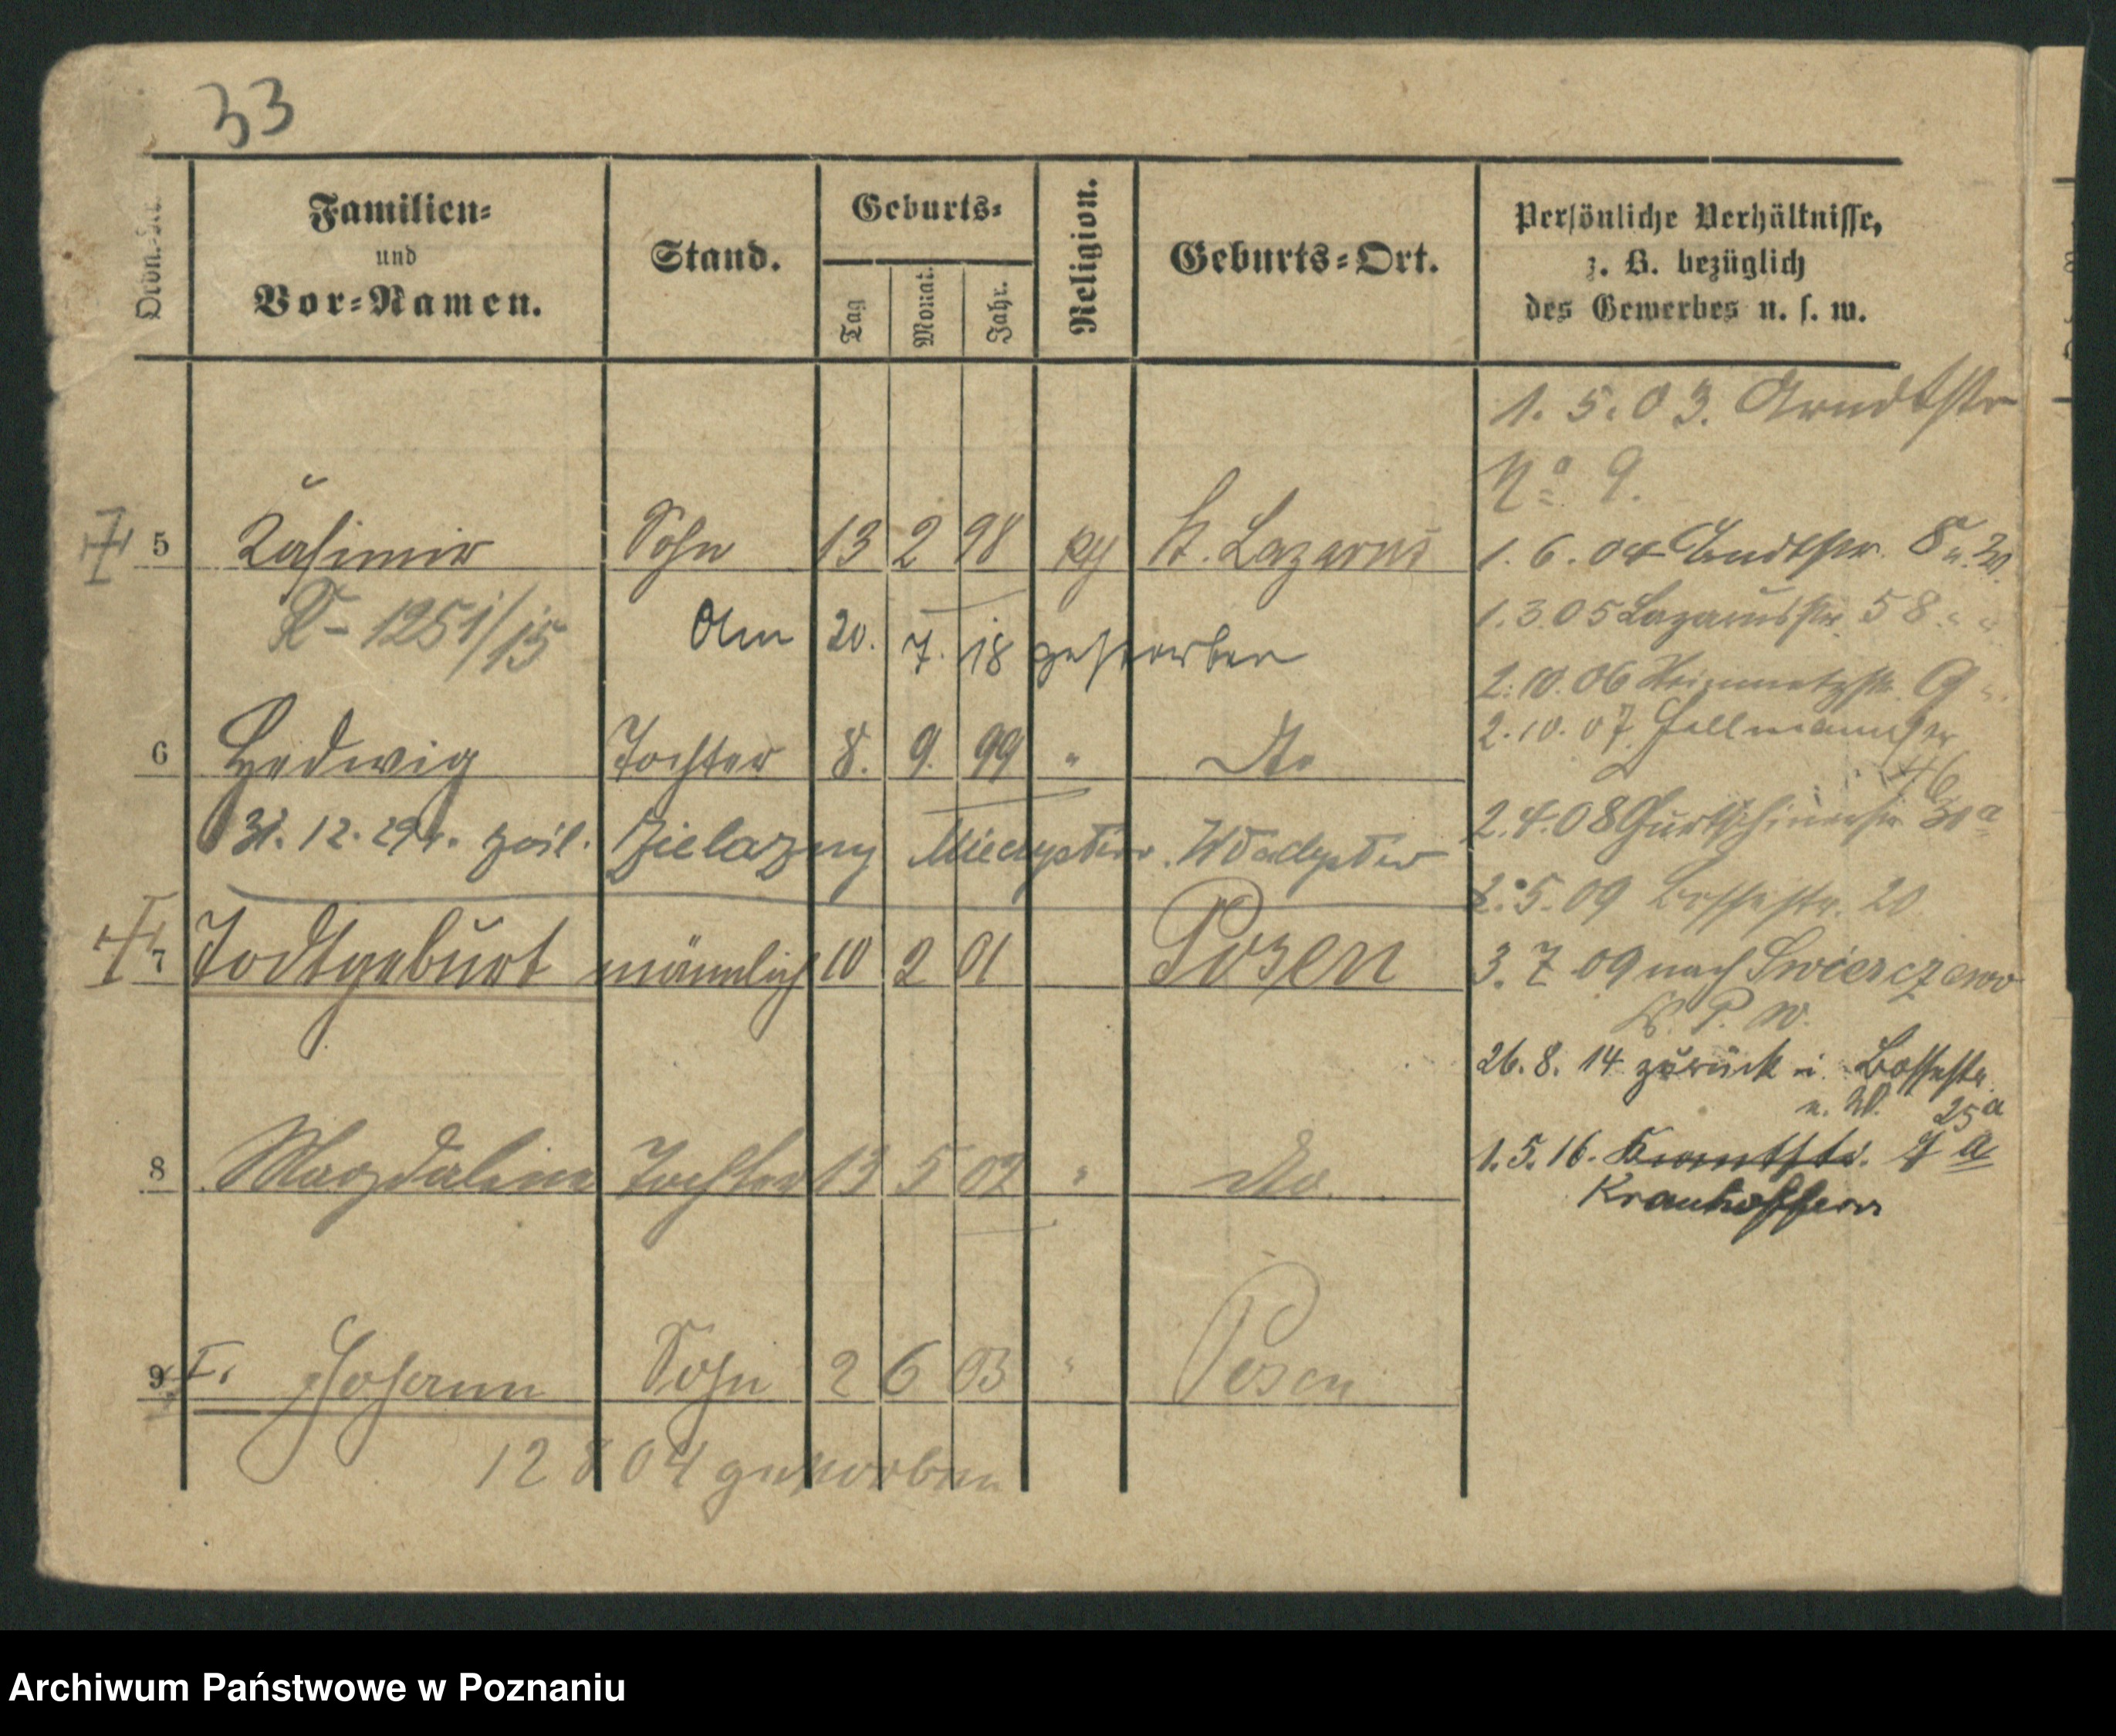 33
Ordn.-Nr.
Familien-
und
Vor-Namen.
Stand.
Geburts-
Tag
Monat.
Jahr.
Religion.
Geburts-Ort.
Persönliche Verhältnisse,
z. B. bezüglich
des Gewerbes u. s. w.
1. 5. 03. Arndtstr
No 9.
5 Kasimir Sohn 13 2 98 St. Lazarus
1. 6. 04
1251/15 Am 20. 7. 18 gestorben
1. 3. 05 Lazarusstr. 58
2. 10. 06 9
6 Hedwig Tochter 8. 9. 99 " dto
2. 10. 07.
46
31. 12. 29
2. 4. 08 Gurtschinerstr 31a
2. 5. 09 Bossestr. 20
7 Todtgeburt männlich 10 2 01 Posen
3. 7. 09 nach Swierczewo
K. P. W.
26. 8. 14 zurück i. Bossestr.
25a
8 Magdalena Tochter 13 5 02 " dto.
1. 5. 16.
9 Johann Sohn 2 6 03 " Posen
12 8 04 gestorben
Archiwum Państwowe w Poznaniu